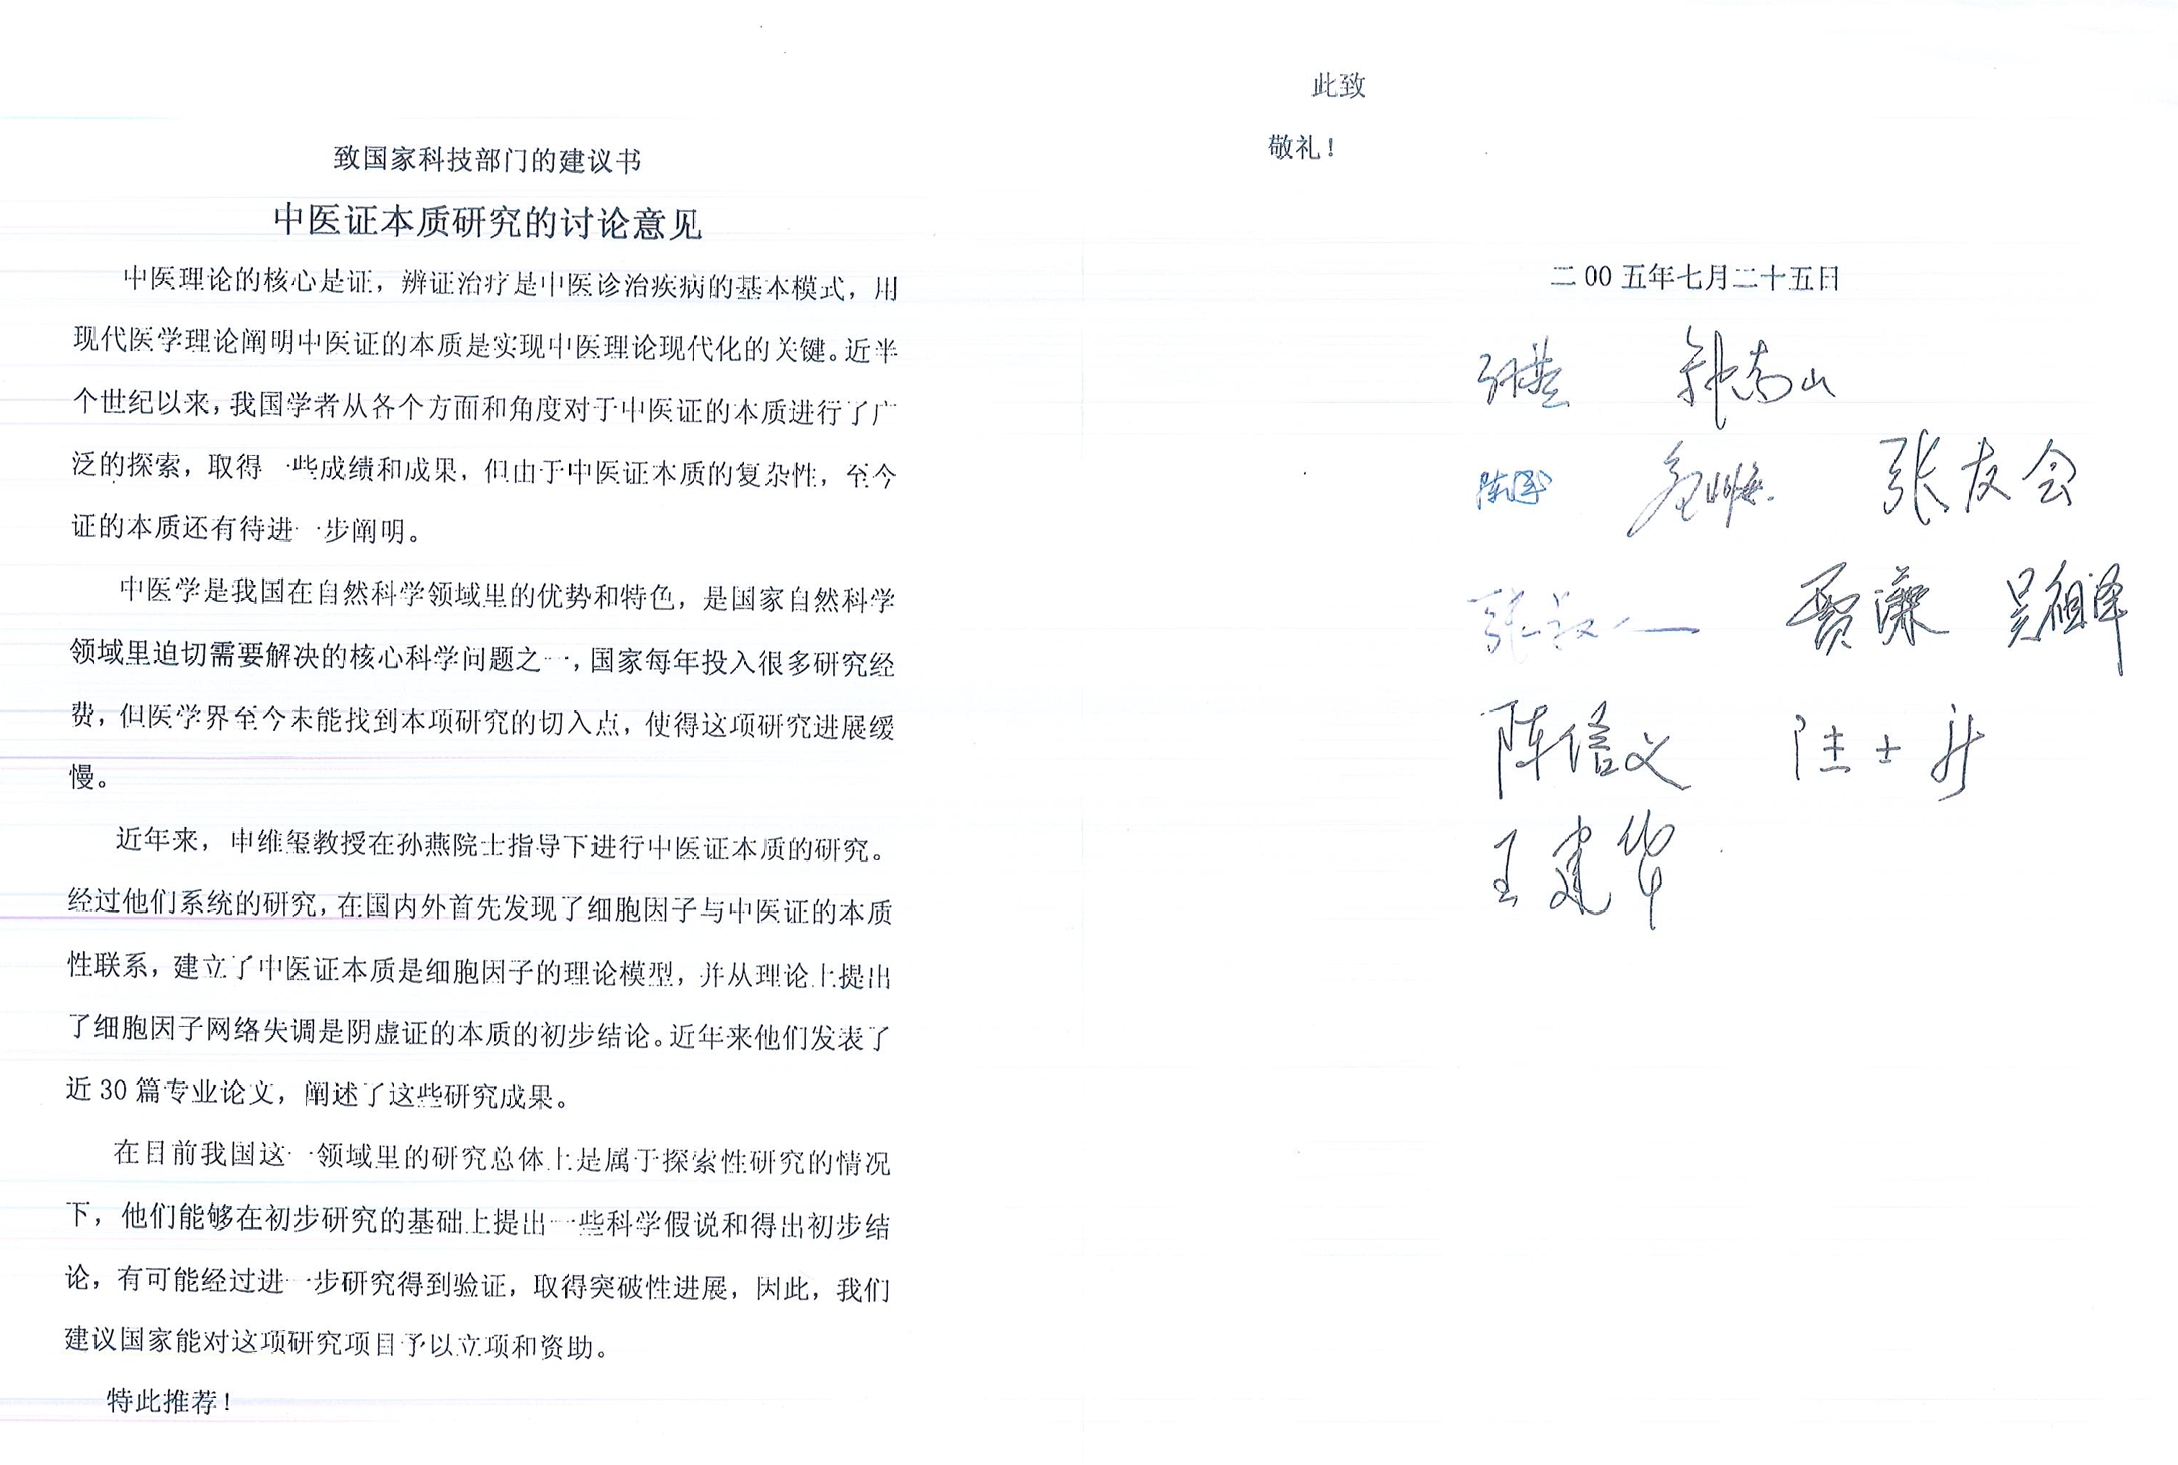 致国家科技部门的建议书
中医证本质研究的讨论意见
中医理论的核心是证，辨证治疗是中医诊治疾病的基本模式，用
现代医学理论阐明中医证的本质是实现中医理论现代化的关键。近半
个世纪以来，我国学者从各个方面和角度对于中医证的本质进行了广
泛的探索，取得一些成绩和成果，但由于中医证本质的复杂性，至今
证的本质还有待进一步阐明。
中医学是我国在自然科学领域里的优势和特色，是国家自然科学
领域里迫切需要解决的核心科学问题之一，国家每年投入很多研究经
费，但医学界至今未能找到本项研究的切入点，使得这项研究进展缓
慢。
近年来，申维玺教授在孙燕院士指导下进行中医证本质的研究。
经过他们系统的研究，在国内外首先发现了细胞因子与中医证的本质
性联系，建立了中医证本质是细胞因子的理论模型，并从理论上提出
了细胞因子网络失调是阴虚证的本质的初步结论。近年来他们发表了
近30篇专业论文，阐述了这些研究成果。
在目前我国这一领域里的研究总体上是属于探索性研究的情况
下，他们能够在初步研究的基础上提出一些科学假说和得出初步结
论，有可能经过进一步研究得到验证，取得突破性进展，因此，我们
建议国家能对这项研究项目予以立项和资助。
特此推荐！
此致
敬礼！
二00五年七月二十五日
钟南山
张友会
吴祖泽
陈信义 陆士新
王建华